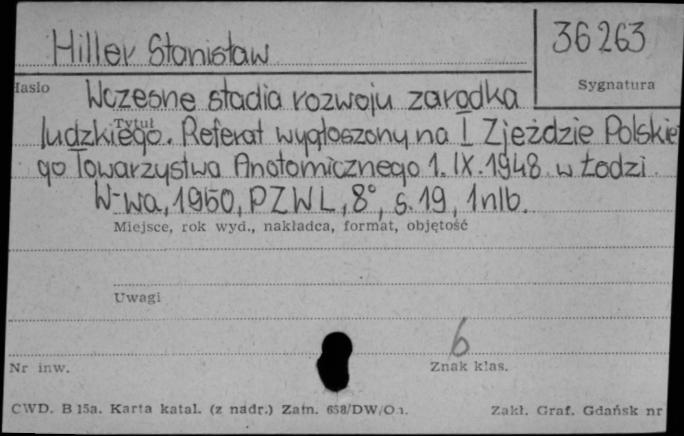 Hiller Stanisław
36263
Hasło
Sygnatura
Wczesne stadia rozwoju zarodka
Tytuł
ludzkiego. Referat wygłoszony na I Zjeździe Polskie
go Towarzystwa Anatomicznego 1.IX.1948 w Łodzi.
W-wa, 1950, PZWL, 8°, s.19, 1nlb.
Miejsce, rok wyd., nakładca, format, objętość
Uwagi
6
Nr inw.
Znak klas.
CWD. B 15a. Karta katal. (z nadr.) Zam. 658/DW/O
Zakł. Graf. Gdańsk nr